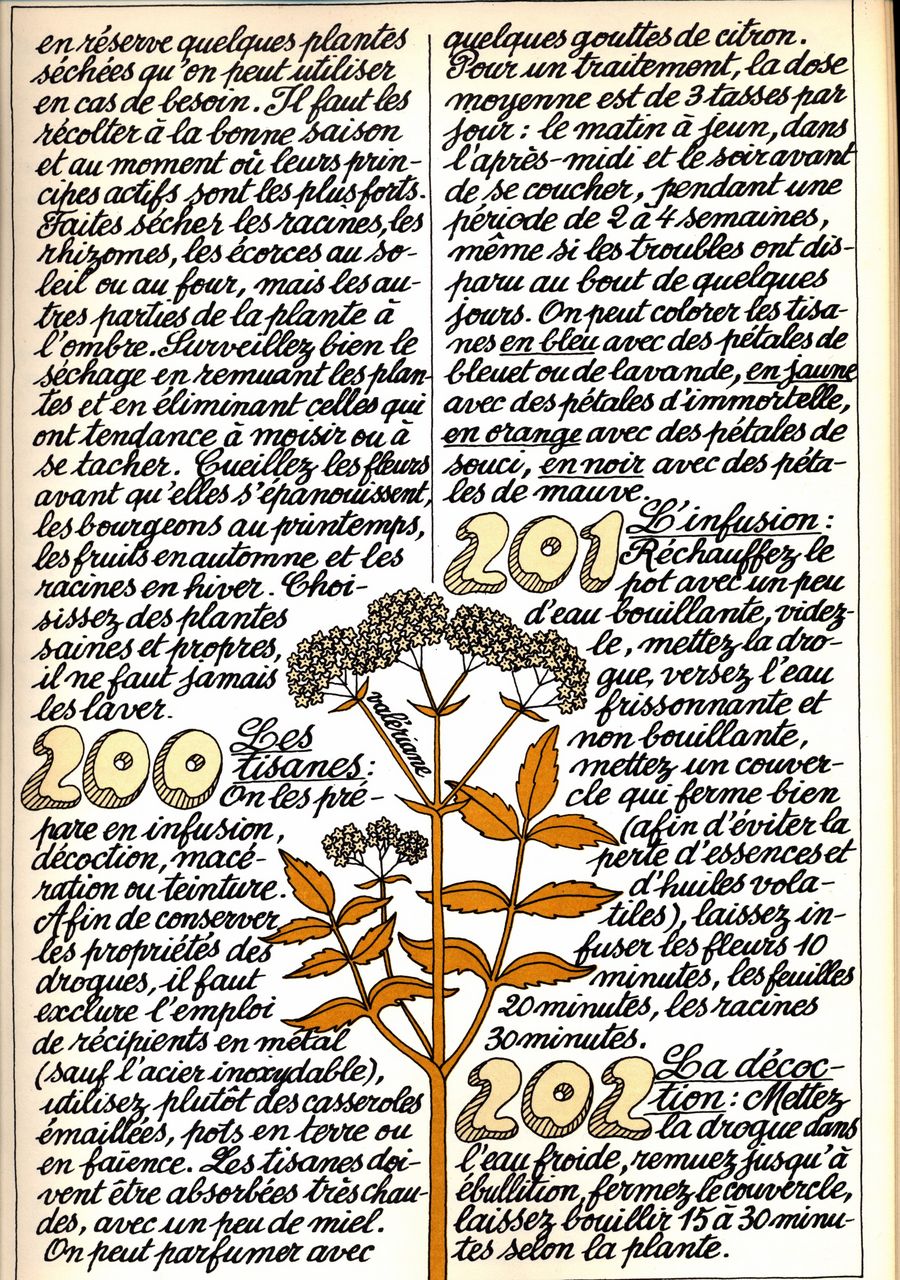 en réserve quelques plantes
séchées qu'on peut utiliser
en cas de besoin. Il faut les
récolter à la bonne saison
et au moment où leurs prin-
cipes actifs sont les plus forts.
Faites sécher les racines, les
rhizomes, les écorces au so-
leil ou au four, mais les au-
tres parties de la plante à
l'ombre. Surveillez bien le
séchage en remuant les plan-
tes et en éliminant celles qui
ont tendance à moisir ou à
se tacher. Cueillez les fleurs
avant qu'elles s'épanouissent,
les bourgeons au printemps,
les fruits en automne et les
racines en hiver. Choi-
sissez des plantes
saines et propres,
il ne faut jamais
les laver.
200 Les
tisanes :
On les pré-
pare en infusion,
décoction, macé-
ration ou teinture.
Afin de conserver
les propriétés des
drogues, il faut
exclure l'emploi
de récipients en métal
(sauf l'acier inoxydable),
utilisez plutôt des casseroles
émaillées, pots en terre ou
en faïence. Les tisanes doi-
vent être absorbées très chau-
des, avec un peu de miel.
On peut parfumer avec
quelques gouttes de citron.
Pour un traitement, la dose
moyenne est de 3 tasses par
jour : le matin à jeun, dans
l'après-midi et le soir avant
de se coucher, pendant une
période de 2 à 4 semaines,
même si les troubles ont dis-
paru au bout de quelques
jours. On peut colorer les tisa-
nes en bleu avec des pétales de
bleuet ou de lavande, en jaune
avec des pétales d'immortelle,
en orange avec des pétales de
souci, en noir avec des péta-
les de mauve.
201 L'infusion :
Réchauffez le
pot avec un peu
d'eau bouillante, videz-
le, mettez la dro-
gue, versez l'eau
frissonnante et
non bouillante,
mettez un couver-
cle qui ferme bien
(afin d'éviter la
perte d'essences et
d'huiles vola-
tiles), laissez in-
fuser les fleurs 10
minutes, les feuilles
20 minutes, les racines
30 minutes.
202 La décoc-
tion : Mettez
la drogue dans
l'eau froide, remuez jusqu'à
ébullition, fermez le couvercle,
laissez bouillir 15 à 30 minu-
tes selon la plante.
valériane